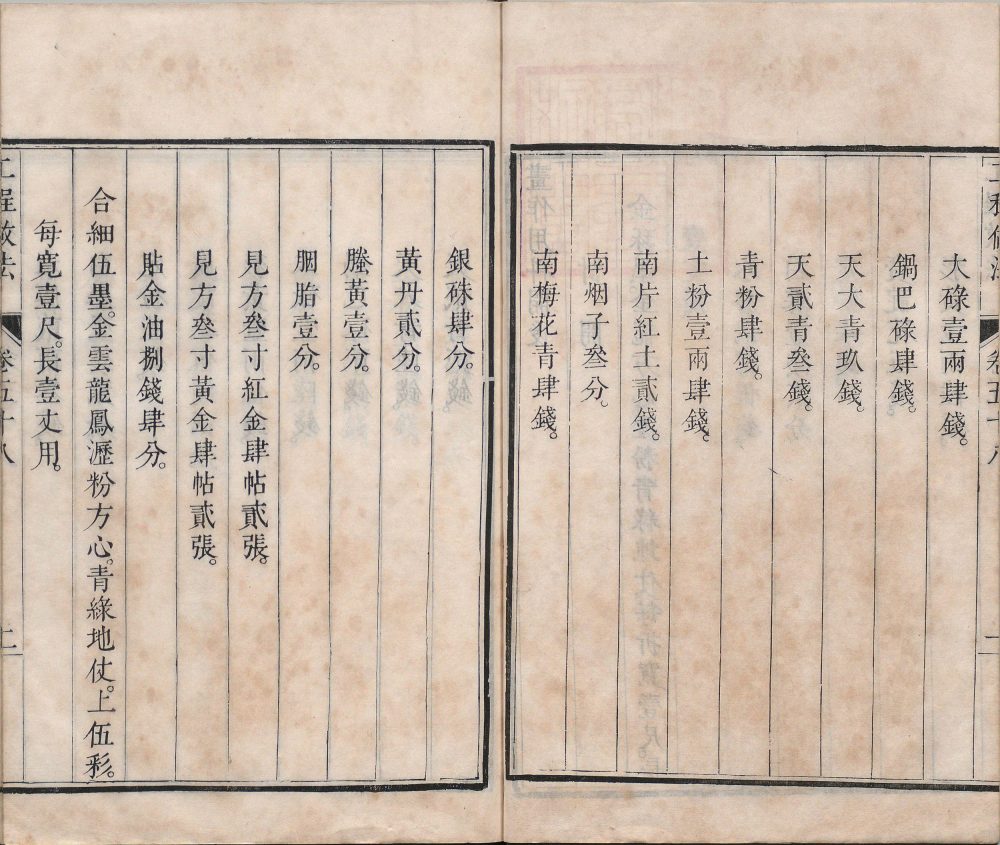 大碌壹兩肆錢。
鍋巴碌肆錢。
天大青玖錢。
天貳青叁錢。
青粉肆錢。
土粉壹兩肆錢。
南片紅土貳錢。
南烟子叁分。
南梅花青肆錢。
銀硃肆分。
黃丹貳分。
螣黃壹分。
胭脂壹分。
見方叁寸紅金肆帖貳張。
見方叁寸黃金肆帖貳張。
貼金油捌錢肆分。
合細伍墨。金雲龍鳳瀝粉方心。青綠地仗。上伍彩。
每寬壹尺。長壹丈用。
工程做法 卷五十八